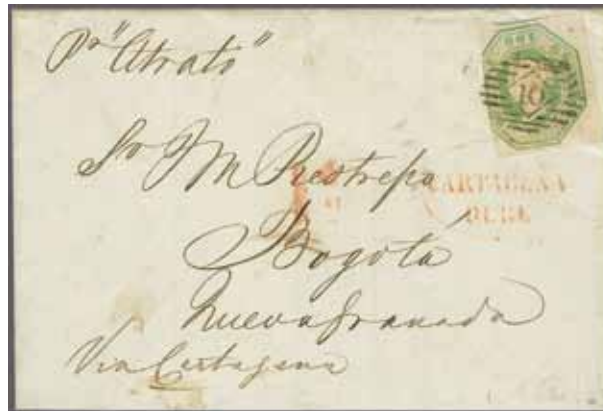 Pr "Atrato"
ONE
10
Sr J M Restrepo
CARTAGENA
DEBE
Bogotá
Nueva Granada
Via Cartagena